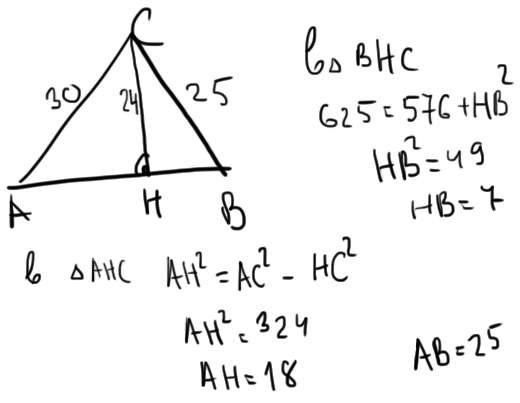 C
30
24
25
A
H
B
в △ BHC
625 = 576 + HB²
HB² = 49
HB = 7
в △ AHC AH² = AC² - HC²
AH² = 324
AH = 18
AB = 25